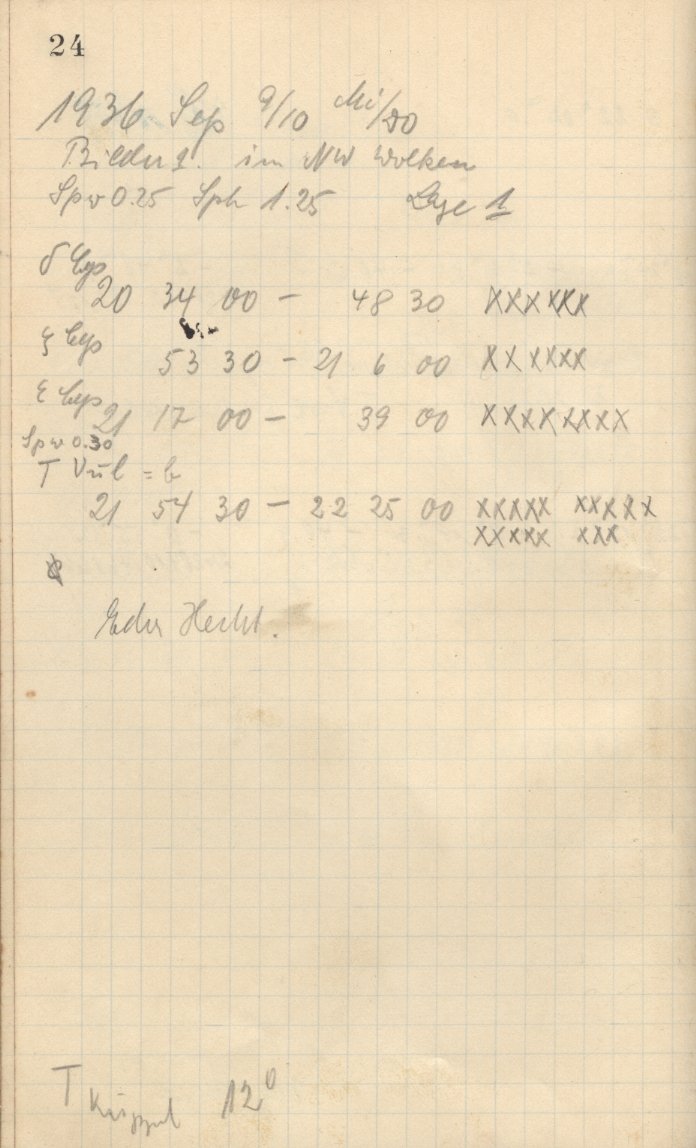 24
1936 Sep 9/10 Mi/Do
Bilder 2. im NW Wolken
Spw 0.25 Sph 1.25 Lage 1
δ Cyg
20 34 00 – 48 30 XXXXXX
ξ Cyg
53 30 – 21 6 00 XXXXXX
ε Cyg
21 17 00 – 39 00 XXXXXXXX
Spw 0.30
T Vul = b
21 54 30 – 22 25 00 XXXXX XXXXX
XXXXX XXX
Hecht.
T Kuppel 12⁰